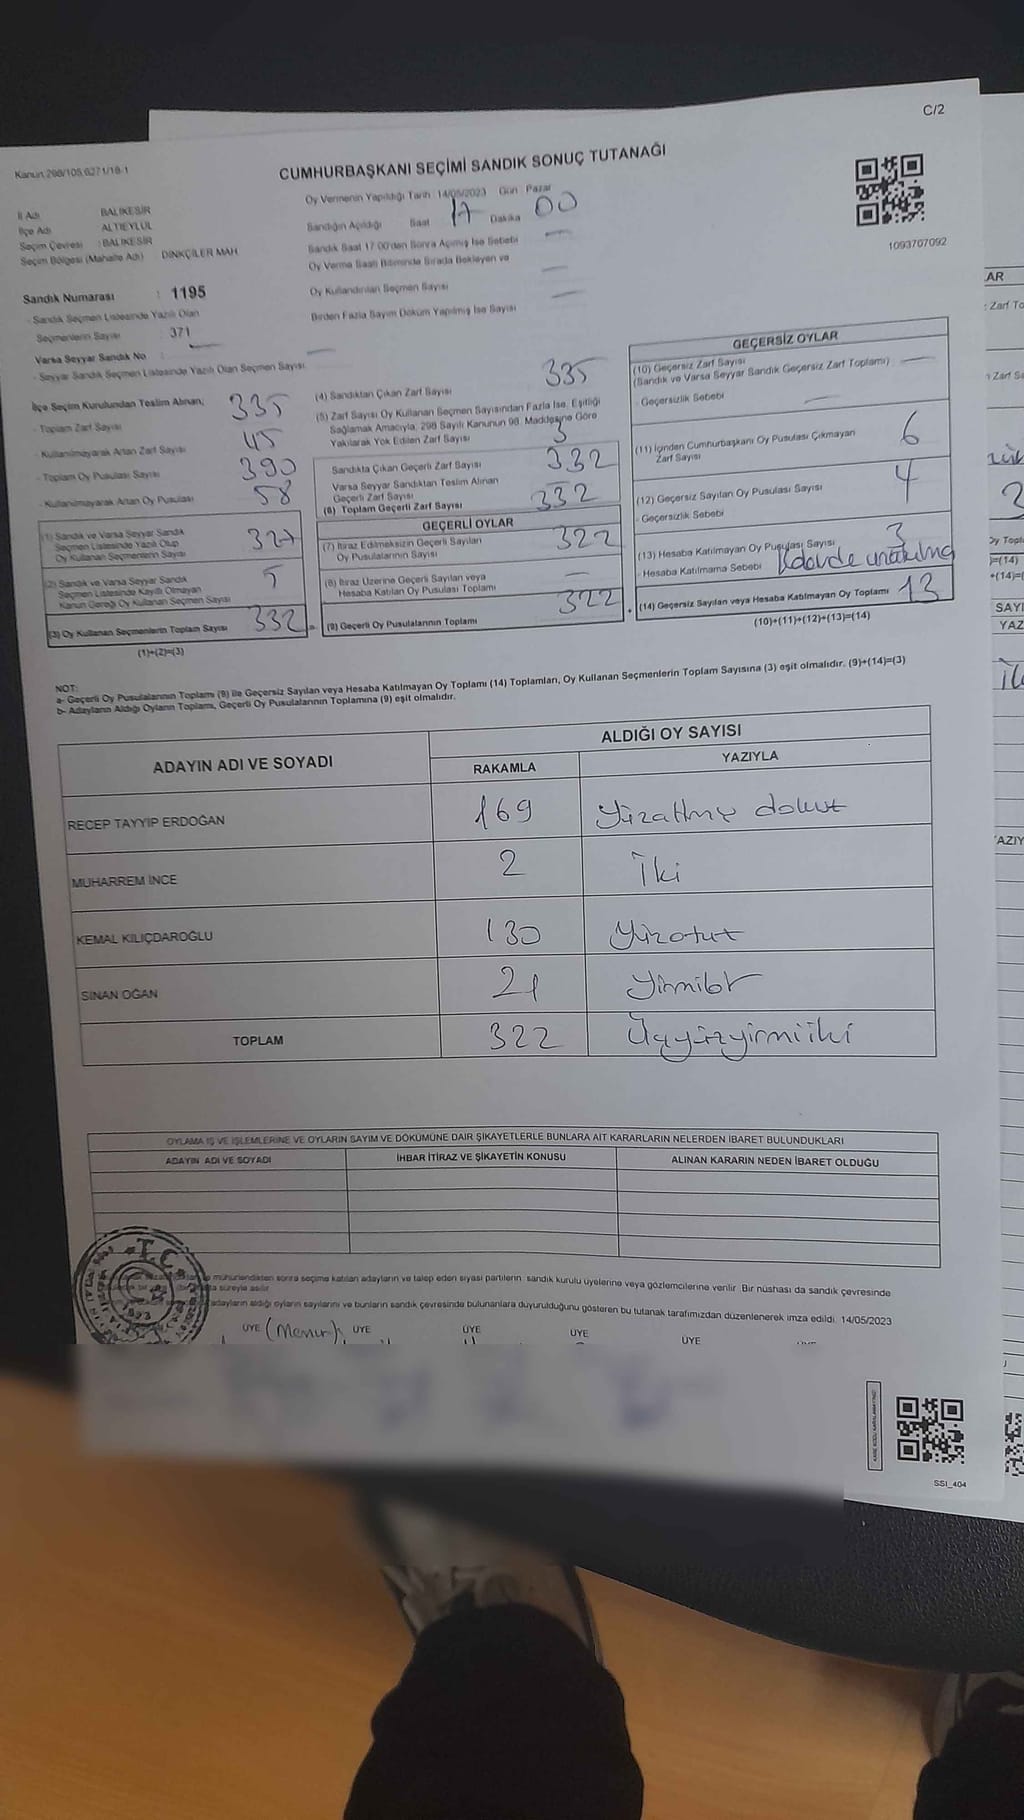 C/2
Kanun:298/105,6271/18-1
CUMHURBAŞKANI SEÇİMİ SANDIK SONUÇ TUTANAĞI
Oy Vermenin Yapıldığı Tarih : 14/05/2023 Gün : Pazar
İl Adı : BALIKESİR
İlçe Adı : ALTIEYLÜL
Seçim Çevresi : BALIKESİR
Seçim Bölgesi (Mahalle Adı) : DİNKÇİLER MAH
Sandığın Açıldığı Saat 17 Dakika 00
Sandık Saat 17:00'den Sonra Açmış İse Sebebi —
Oy Verme Saati Bitiminde Sırada Bekleyen ve
Oy Kullandırılan Seçmen Sayısı —
Birden Fazla Sayım Döküm Yapılmış İse Sayısı —
1093707092
Sandık Numarası : 1195
- Sandık Seçmen Listesinde Yazılı Olan
Seçmenlerin Sayısı : 371
Varsa Seyyar Sandık No : —
- Seyyar Sandık Seçmen Listesinde Yazılı Olan Seçmen Sayısı: —
İlçe Seçim Kurulundan Teslim Alınan;
- Toplam Zarf Sayısı 335
- Kullanılmayarak Artan Zarf Sayısı 45
- Toplam Oy Pusulası Sayısı 390
- Kullanılmayarak Artan Oy Pusulası 58
(1) Sandık ve Varsa Seyyar Sandık
Seçmen Listesinde Yazılı Olup
Oy Kullanan Seçmenlerin Sayısı 327
(2) Sandık ve Varsa Seyyar Sandık
Seçmen Listesinde Kayıtlı Olmayan
Kanun Gereği Oy Kullanan Seçmen Sayısı 5
(3) Oy Kullanan Seçmenlerin Toplam Sayısı 332
(1)+(2)=(3)
(4) Sandıktan Çıkan Zarf Sayısı 335
(5) Zarf Sayısı Oy Kullanan Seçmen Sayısından Fazla İse, Eşitliği
Sağlamak Amacıyla, 298 Sayılı Kanunun 98. Maddesine Göre
Yakılarak Yok Edilen Zarf Sayısı 3
Sandıkta Çıkan Geçerli Zarf Sayısı 332
Varsa Seyyar Sandıktan Teslim Alınan
Geçerli Zarf Sayısı
(6) Toplam Geçerli Zarf Sayısı 332
GEÇERLİ OYLAR
(7) İtiraz Edilmeksizin Geçerli Sayılan
Oy Pusulalarının Sayısı 322
(8) İtiraz Üzerine Geçerli Sayılan veya
Hesaba Katılan Oy Pusulası Toplamı —
(9) Geçerli Oy Pusulalarının Toplamı 322
GEÇERSİZ OYLAR
(10) Geçersiz Zarf Sayısı
(Sandık ve Varsa Seyyar Sandık Geçersiz Zarf Toplamı) —
- Geçersizlik Sebebi —
(11) İçinden Cumhurbaşkanı Oy Pusulası Çıkmayan
Zarf Sayısı 6
(12) Geçersiz Sayılan Oy Pusulası Sayısı 4
- Geçersizlik Sebebi
(13) Hesaba Katılmayan Oy Pusulası Sayısı 3
- Hesaba Katılmama Sebebi
(14) Geçersiz Sayılan veya Hesaba Katılmayan Oy Toplamı 13
(10)+(11)+(12)+(13)=(14)
NOT:
a- Geçerli Oy Pusulalarının Toplamı (9) ile Geçersiz Sayılan veya Hesaba Katılmayan Oy Toplamı (14) Toplamları, Oy Kullanan Seçmenlerin Toplam Sayısına (3) eşit olmalıdır. (9)+(14)=(3)
b- Adayların Aldığı Oyların Toplamı, Geçerli Oy Pusulalarının Toplamına (9) eşit olmalıdır.
ADAYIN ADI VE SOYADI
ALDIĞI OY SAYISI
RAKAMLA YAZIYLA
RECEP TAYYİP ERDOĞAN 169 Yüzaltmış dokuz
MUHARREM İNCE 2 İki
KEMAL KILIÇDAROĞLU 130 Yüzotuz
SİNAN OĞAN 21 Yirmibir
TOPLAM 322 Üçyüzyirmiiki
OYLAMA İŞ VE İŞLEMLERİNE VE OYLARIN SAYIM VE DÖKÜMÜNE DAİR ŞİKAYETLERLE BUNLARA AİT KARARLARIN NELERDEN İBARET BULUNDUKLARI
ADAYIN ADI VE SOYADI İHBAR İTİRAZ VE ŞİKAYETİN KONUSU ALINAN KARARIN NEDEN İBARET OLDUĞU
mühürlendikten sonra seçime katılan adayların ve talep eden siyasi partilerin sandık kurulu üyelerine veya gözlemcilerine verilir. Bir nüshası da sandık çevresinde
süreyle asılır.
adayların aldığı oyların sayılarını ve bunların sandık çevresinde bulunanlara duyurulduğunu gösteren bu tutanak tarafımızdan düzenlenerek imza edildi. 14/05/2023
T.C.
ÜYE (Memur) ÜYE ÜYE ÜYE ÜYE
SSI_404